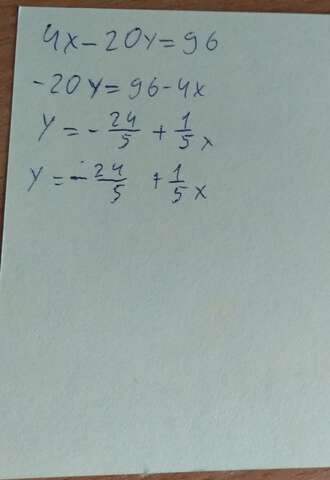 4x-20y=96
-20y=96-4x
y=-24/5+1/5x
y=-24/5+1/5x